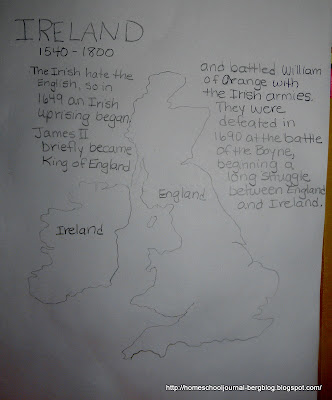 IRELAND
1540-1800
The Irish hate the
English, so in
1649 an Irish
uprising began.
James II
briefly became
King of England
and battled William
of Orange with
the Irish armies.
They were
defeated in
1690 at the battle
of the Boyne,
beginning a
long struggle
between England
and Ireland.
England
Ireland
http://homeschooljournal-bergblog.blogspot.com/